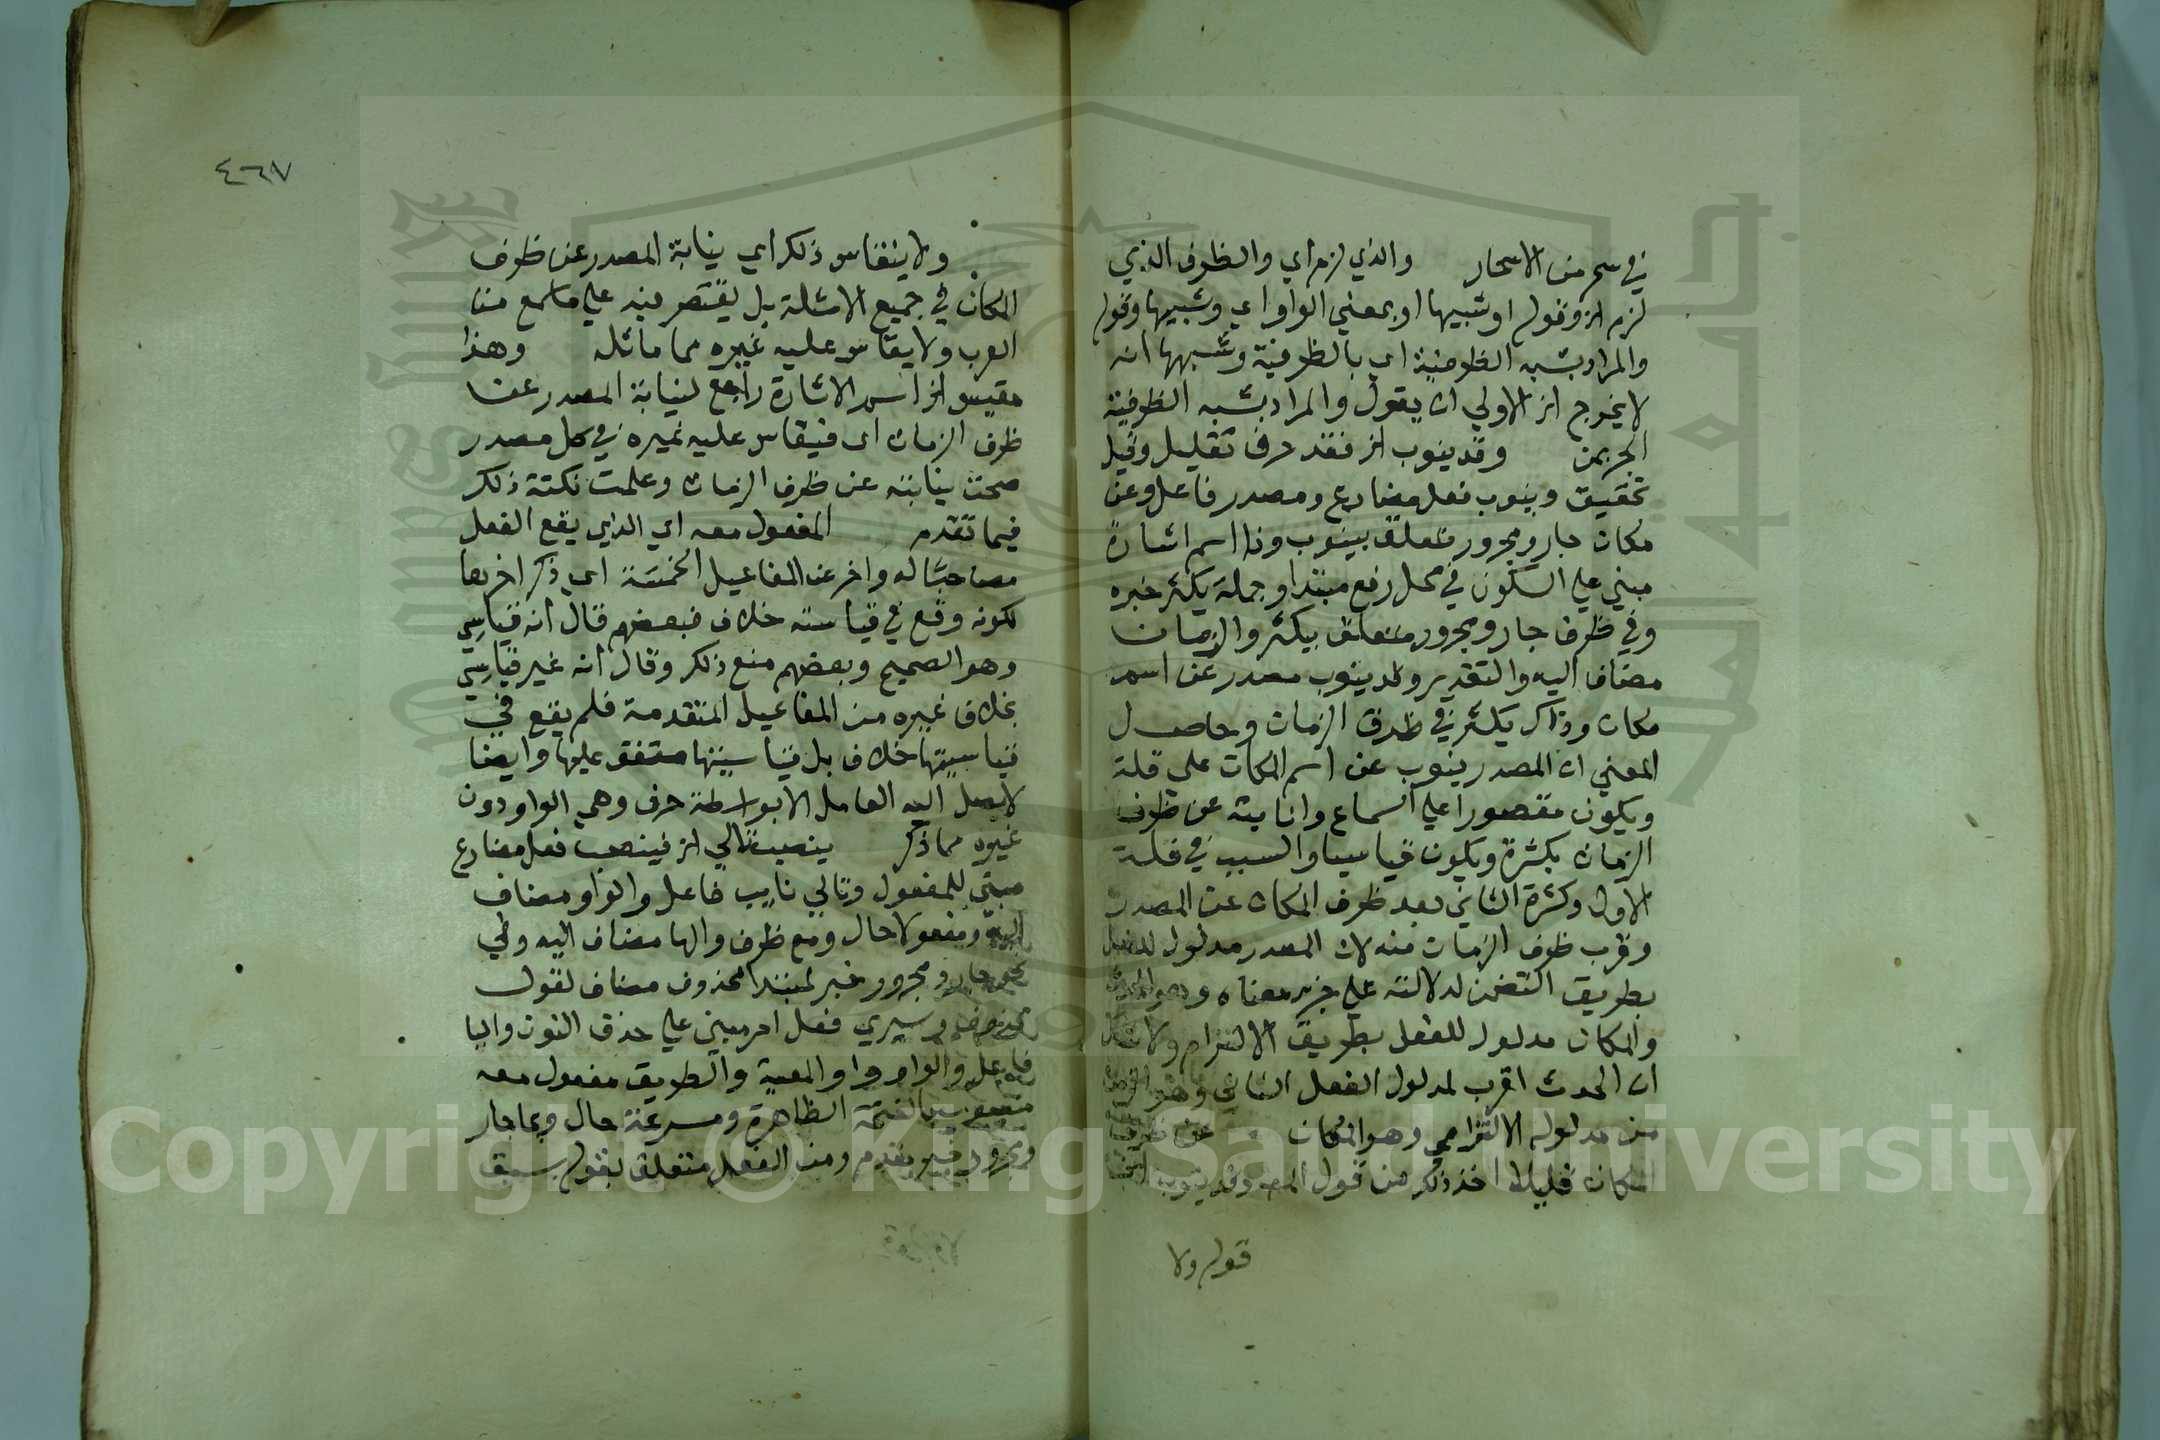 في سحر من الاسحار والذي لزم اي والظرف الذي
لزم الخ وقوله او شبيهها او بمعني الواو اي وشبيهها وقوله
والمراد بشبه الظرفية اي بالظرفية وشبهها انه
لا يخرج الخ الاولي ان يقول والمراد بشبه الظرفية
الجر بمن وقد ينوب الخ فقد حرف تقليل وقيل
تحقيق وينوب فعل مضارع ومصدر فاعل وعن
مكان جار ومجرور متعلق بينوب وذا اسم اشارة
مبني علي السكون في محل رفع مبتدا وجملة يكثر خبره
وفي ظرف جار ومجرور متعلق بيكثر والزمان
مضاف اليه والتقدير وقد ينوب مصدر عن اسم
مكان وذاك يكثر في ظرف الزمان وحاصل
المعني ان المصدر ينوب عن اسم المكان علي قلة
ويكون مقصورا علي السماع وانابته عن ظرف
الزمان بكثرة ويكون قياسيا والسبب في قلة
الاول وكثرة الثاني بعد ظرف المكان عن المصدر
وقرب ظرف الزمان منه لان المصدر مدلول للفعل
بطريق التضمن لدلالته علي جزء معناه وهو الحدث
والمكان مدلول للفعل بطريق الالتزام ولا شك
ان الحدث اقرب لمدلول الفعل الثاني وهو الزمان
من مدلوله الالتزامي وهو المكان عن ظرف
المكان قليلا اخذ ذلك من قول المص وقد ينوب
قوله ولا
٤٦٧
ولا ينقاس ذلك اي نيابة المصدر عن ظرف
المكان في جميع الامثلة بل يقتصر فيه علي ما سمع من
العرب ولا يقاس عليه غيره مما ماثله وهذا
مقيس الخ اسم الاشارة راجع لنيابة المصدر عن
ظرف الزمان اي فيقاس عليه غيره في كل مصدر
صحت نيابته عن ظرف الزمان وعلمت نكتة ذلك
فيما تقدم المفعول معه اي الذي يقع الفعل
مصاحبا له واخر عن المفاعيل الخمسة اي ذكر اخرها
لكونه وقع في قياسيته خلاف فبعضهم قال انه قياسي
وهو الصحيح وبعضهم منع ذلك وقال انه غير قياسي
بخلاف غيره من المفاعيل المتقدمة فلم يقع في
قياسيتها خلاف بل قياسيتها متفق عليها وايضا
لا يصل اليه العامل الا بواسطة حرف وهي الواو دون
غيره مما ذكر ينصب تالي الخ فينصب فعل مضارع
مبني للمفعول وتالي نايب فاعل والواو مضاف
اليه ومفعولا حال ومع ظرف والها مضاف اليه وفي
نحو جار ومجرور خبر لمبتدا محذوف مضاف لقول
محذوف وسيري فعل امر مبني علي حذف النون واليا
فاعل والواو واو المعية والطريق مفعول معه
منصوب بالفتحة الظاهرة ومسرعة حال وبما جار
ومجرور خبر مقدم ومن الفعل متعلق بقوله سبق